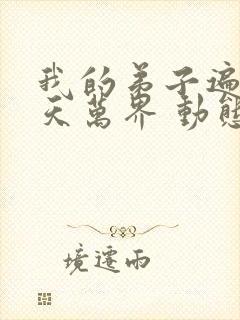 我的弟子遍
天萬界 動態
境遷雨